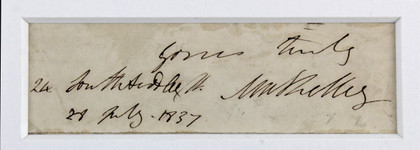 yours truly
24 South Audley St. MWShelley
28 July. 1837